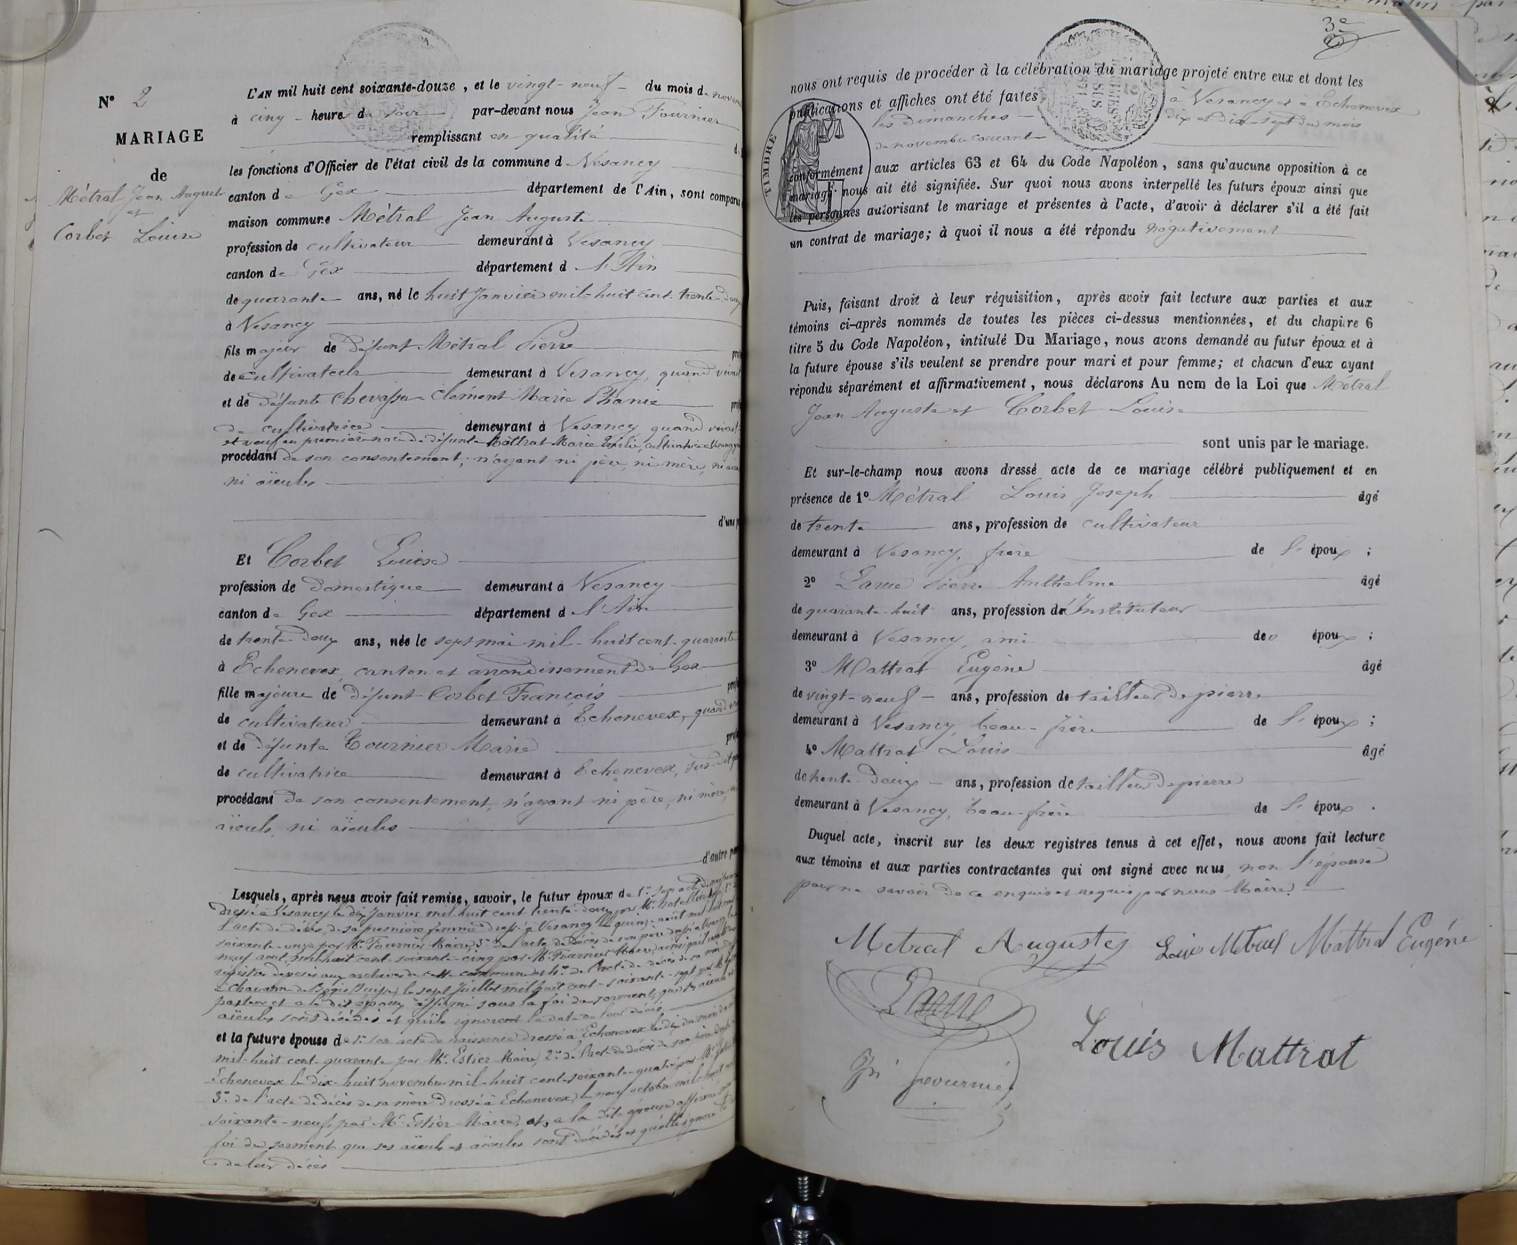 N° 2
MARIAGE
de
Métral Jean Auguste
et
Corbet Louise
L'AN mil huit cent soixante-douze, et le vingt-neuf du mois de
à cinq heure du soir par-devant nous Jean Fournier
remplissant en qualité
les fonctions d'Officier de l'état civil de la commune de Vesancy
canton de Gex département de l'Ain, sont comparus
maison commune Métral Jean Auguste
profession de cultivateur demeurant à Vesancy
canton de Gex département d l'Ain
de quarante ans, né le huit Janvier mil-huit cent trente-deux
à Vesancy
fils majeur de défunt Métral Pierre
de cultivateur demeurant à Vesancy, quand vivait
et de défunte Chevassu Clément Marie
de cultivatrice demeurant à Vesancy quand vivait
et veuf en première noce de défunte Mattrat Marie cultivatrice
procédant de son consentement, n'ayant ni père, ni mère, ni
ni aïeules
d'une
Et Corbet Louise
profession de domestique demeurant à Vesancy
canton de Gex département d l'Ain
de trente-deux ans, née le sept mai mil-huit cent quarante
à Echenevex, canton et arrondissement de Gex
fille majeure de défunt Corbet François
de cultivateur demeurant à Echenevex, quand
et de défunte Tournier Marie
de cultivatrice demeurant à Echenevex, susdit
procédant de son consentement, n'ayant ni père, ni mère,
aïeuls, ni aïeules
d'autre
Lesquels, après nous avoir fait remise, savoir, le futur époux de 1° son acte de naissance
dressé à Vesancy le dix Janvier mil huit cent trente-deux par Mr
l'acte de décès de sa première femme dressé à Vesancy le quinze août mil huit cent
soixante-onze par Mr Fournier Maire, 3° de l'acte de décès de son père
neuf août mil huit cent soixante-cinq par Mr Fournier Maire,
registres déposés aux archives de cette commune 4° de l'acte de décès de sa
à Chavannes (Suisse) le sept Juillet mil huit cent soixante-sept par Mr
pasteur et a le dit époux affirmé sous la foi du serment, que
aïeules sont décédés et qu'ils ignorent la date de leur décès
et la future épouse de 1° son acte de naissance dressé à Echenevex le dix du mois de
mil huit cent quarante par Mr Estier Maire, 2° de l'acte de décès de son père
Echenevex le dix-huit novembre mil-huit cent soixante-quatre par Mr
3° de l'acte de décès de sa mère dressé à Echenevex le neuf octobre mil huit
soixante-neuf par Mr Estier Maire, et a la dite épouse affirmé
foi du serment que ses aïeuls et aïeules sont décédés et qu'elle ignore
de leur décès
3e
nous ont requis de procéder à la célébration du mariage projeté entre eux et dont les
publications et affiches ont été faites, à Vesancy et à Echenevex
les dimanches dix et dix-sept du mois
de novembre courant
TIMBRE
conformément aux articles 63 et 64 du Code Napoléon, sans qu'aucune opposition à ce
mariage nous ait été signifiée. Sur quoi nous avons interpellé les futurs époux ainsi que
les personnes autorisant le mariage et présentes à l'acte, d'avoir à déclarer s'il a été fait
un contrat de mariage; à quoi il nous a été répondu négativement
Puis, faisant droit à leur réquisition, après avoir fait lecture aux parties et aux
témoins ci-après nommés de toutes les pièces ci-dessus mentionnées, et du chapitre 6
titre 5 du Code Napoléon, intitulé Du Mariage, nous avons demandé au futur époux et à
la future épouse s'ils veulent se prendre pour mari et pour femme; et chacun d'eux ayant
répondu séparément et affirmativement, nous déclarons Au nom de la Loi que Métral
Jean Auguste et Corbet Louise
sont unis par le mariage.
Et sur-le-champ nous avons dressé acte de ce mariage célébré publiquement et en
présence de 1° Métral Louis Joseph âgé
de trente ans, profession de cultivateur
demeurant à Vesancy, frère de l' époux ;
2° Larue Pierre Anthelme âgé
de quarante-huit ans, profession d'Instituteur
demeurant à Vesancy, ami des époux ;
3° Mattrat Eugène âgé
de vingt-neuf ans, profession de tailleur de pierre
demeurant à Vesancy, beau-frère de l' époux ;
4° Mattrat Louis âgé
de trente-deux ans, profession de tailleur de pierre
demeurant à Vesancy, beau-frère de l' époux .
Duquel acte, inscrit sur les deux registres tenus à cet effet, nous avons fait lecture
aux témoins et aux parties contractantes qui ont signé avec nous, non l'épouse
pour ne savoir de ce enquise et requise par nous Maire.
Metral Auguste Louis Metral Mattrat Eugéne
Larue
Louis Mattrat
Jn Fournier